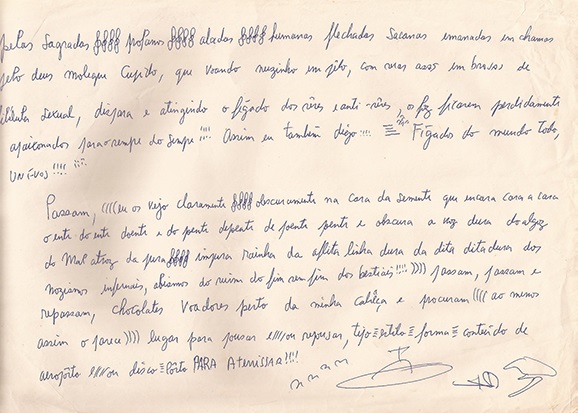 pelas sagradas §§§§ profanas §§§§ aladas §§§§ humanas flechadas sacanas emanadas em chamas
pelo deus moleque Cupido, que voando nuzinho em pêlo, com suas asas em brasas de
libido sexual, dispara e atingindo o fígado dos sêres e anti-sêres, os faz ficarem perdidamente
apaixonados para o sempre do sempre!!!! Assim eu também digo!!!! Fígados do mundo todo,
UNÍ-vos!!!!
Passam, ((((eu os vejo claramente §§§§ obscuramente na cara da semente que encara cara a cara
o ente do ente doente e do pente depente de poente pente e obscura a voz dura do algoz
do Mal atroz da pura §§§§ impura rainha da aflita linha dura da dita ditadura dos
nazismos infernais, abismos do ruim do fim sem fim dos bestiais!!!! )))) passam, passam e
repassam, chocolates voadores perto da minha cabêça e procuram ((((ao menos
assim o parece)))) lugar para pousar e////ou repousar, tipo ≡ estilo ≡ forma ≡ conteúdo de
aeropôrto e////ou disco ≡ pôrto PARA Aterrissar!!!!